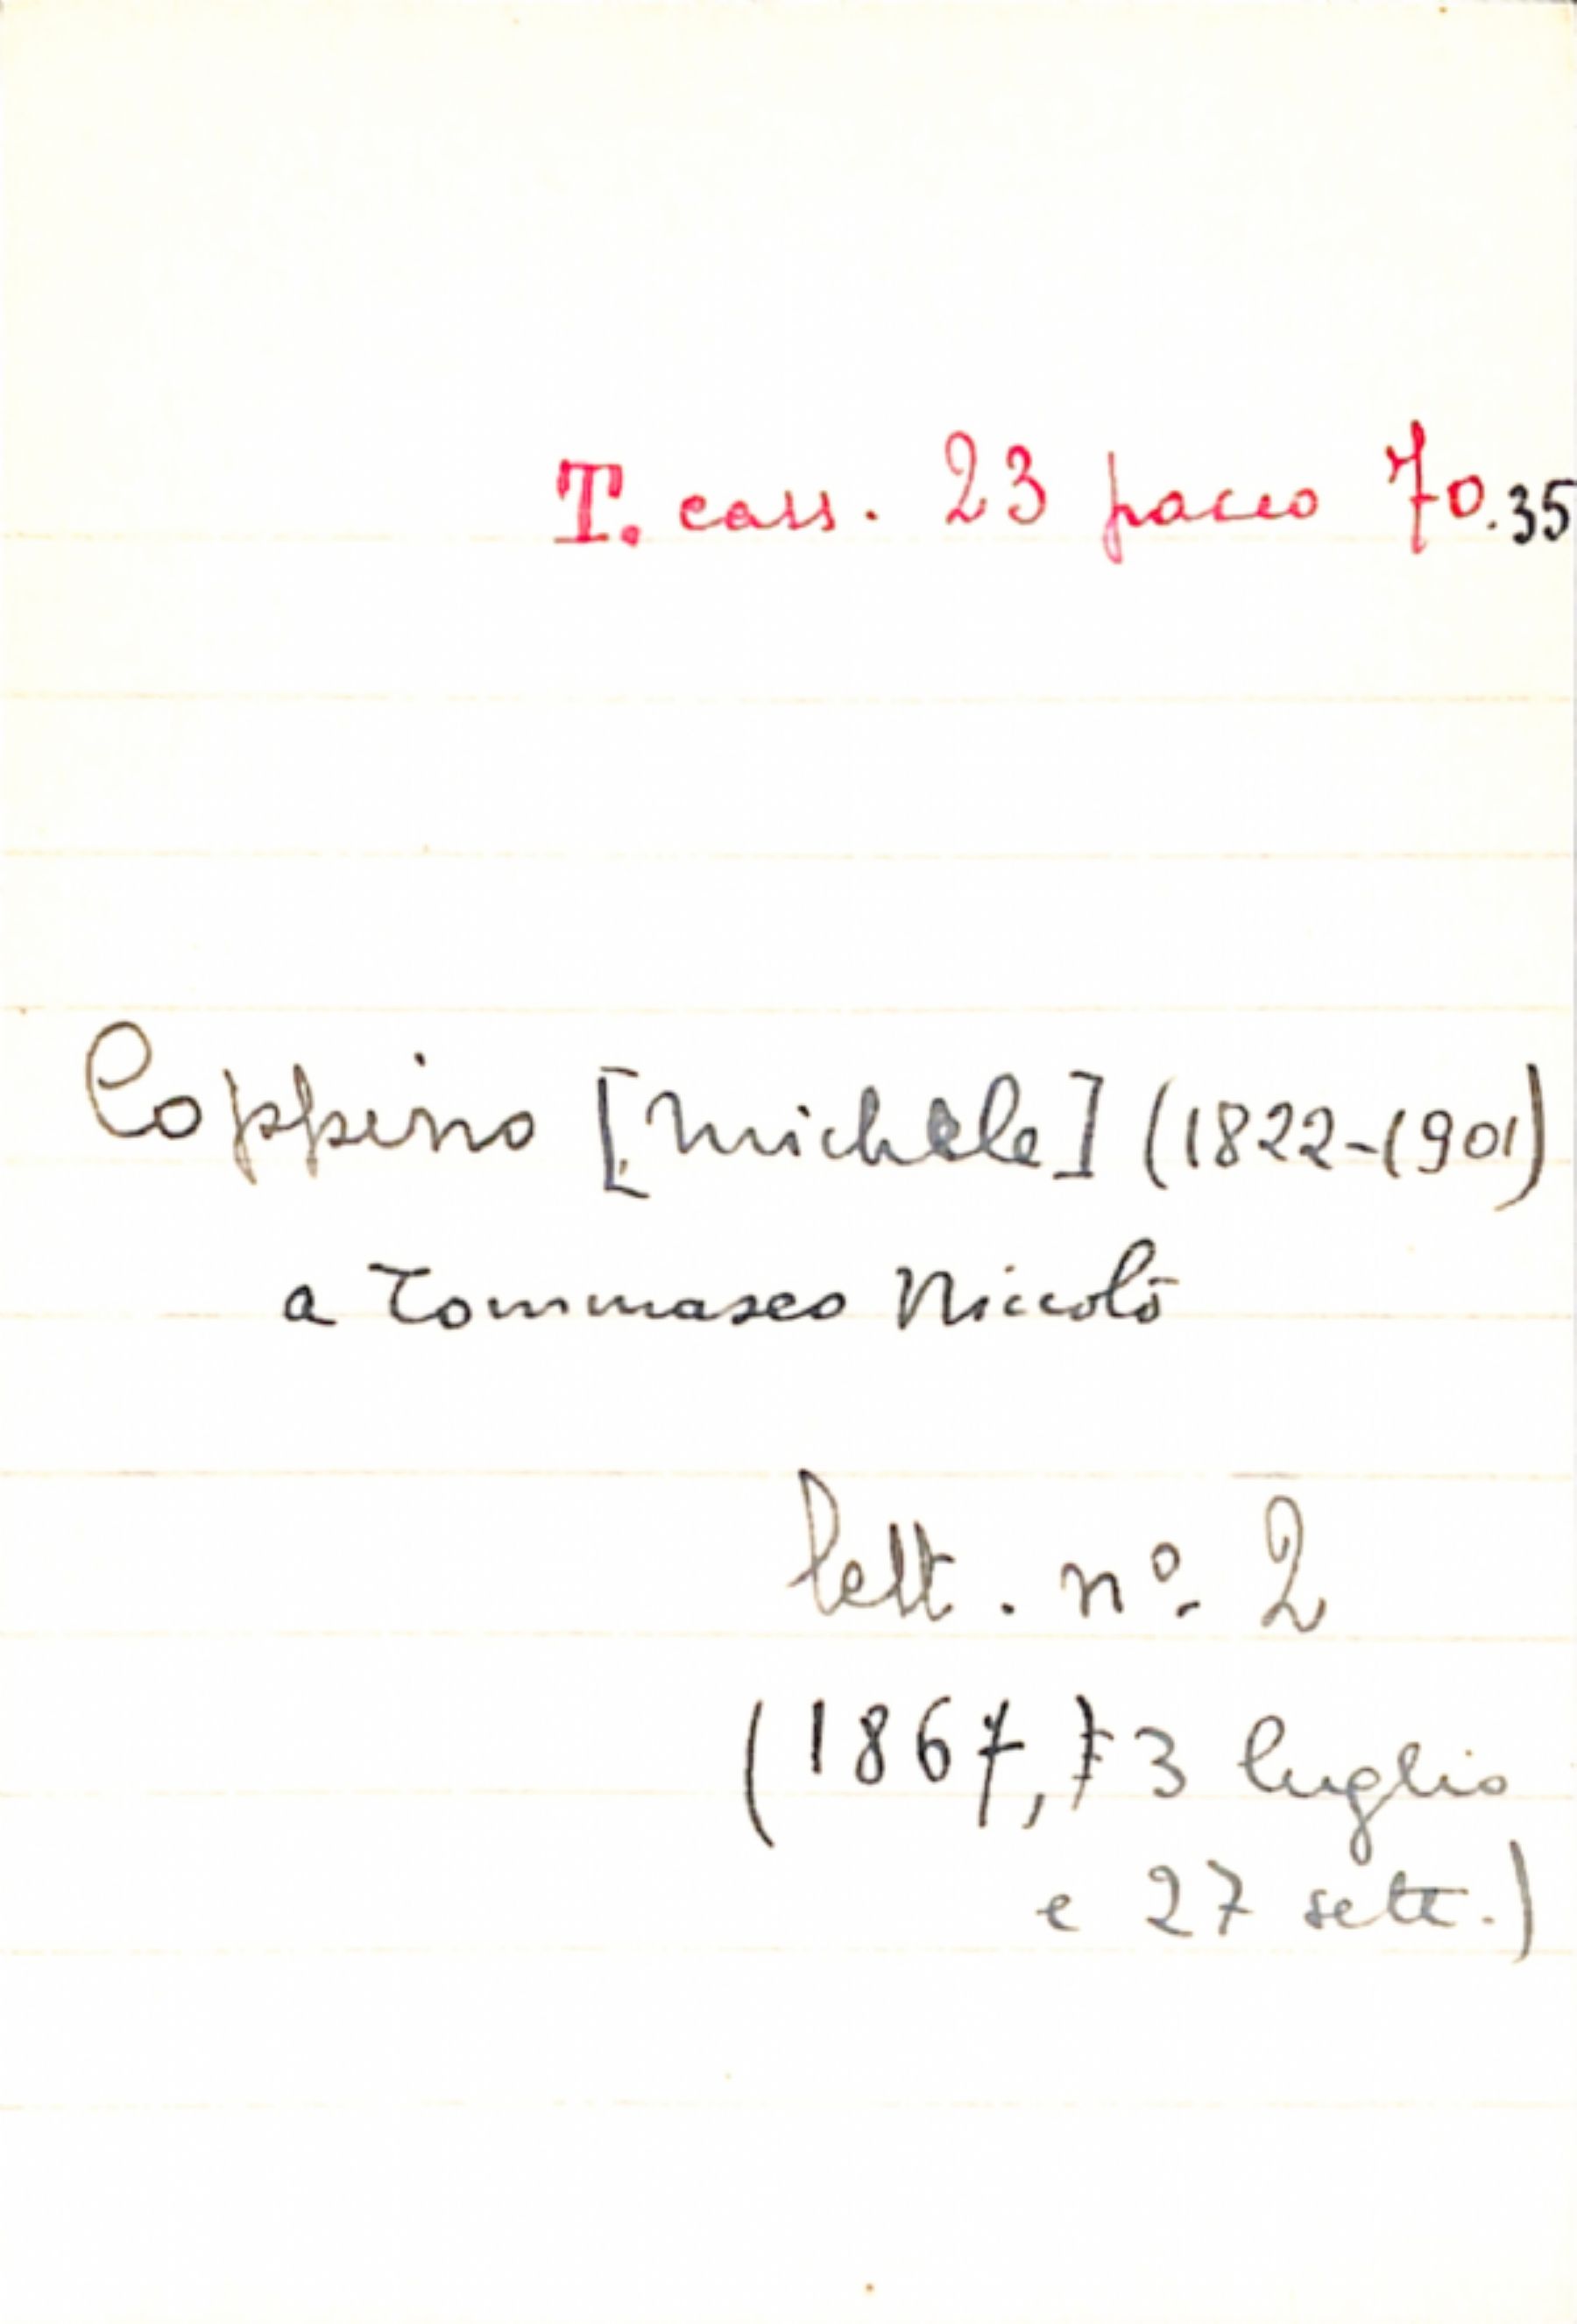 T. cass. 23 pacco 70.35
Coppino [Michele] (1822-1901)
a Tommaseo Niccolò
lett. nº. 2
(1867, 3 luglio
e 27 sett.)